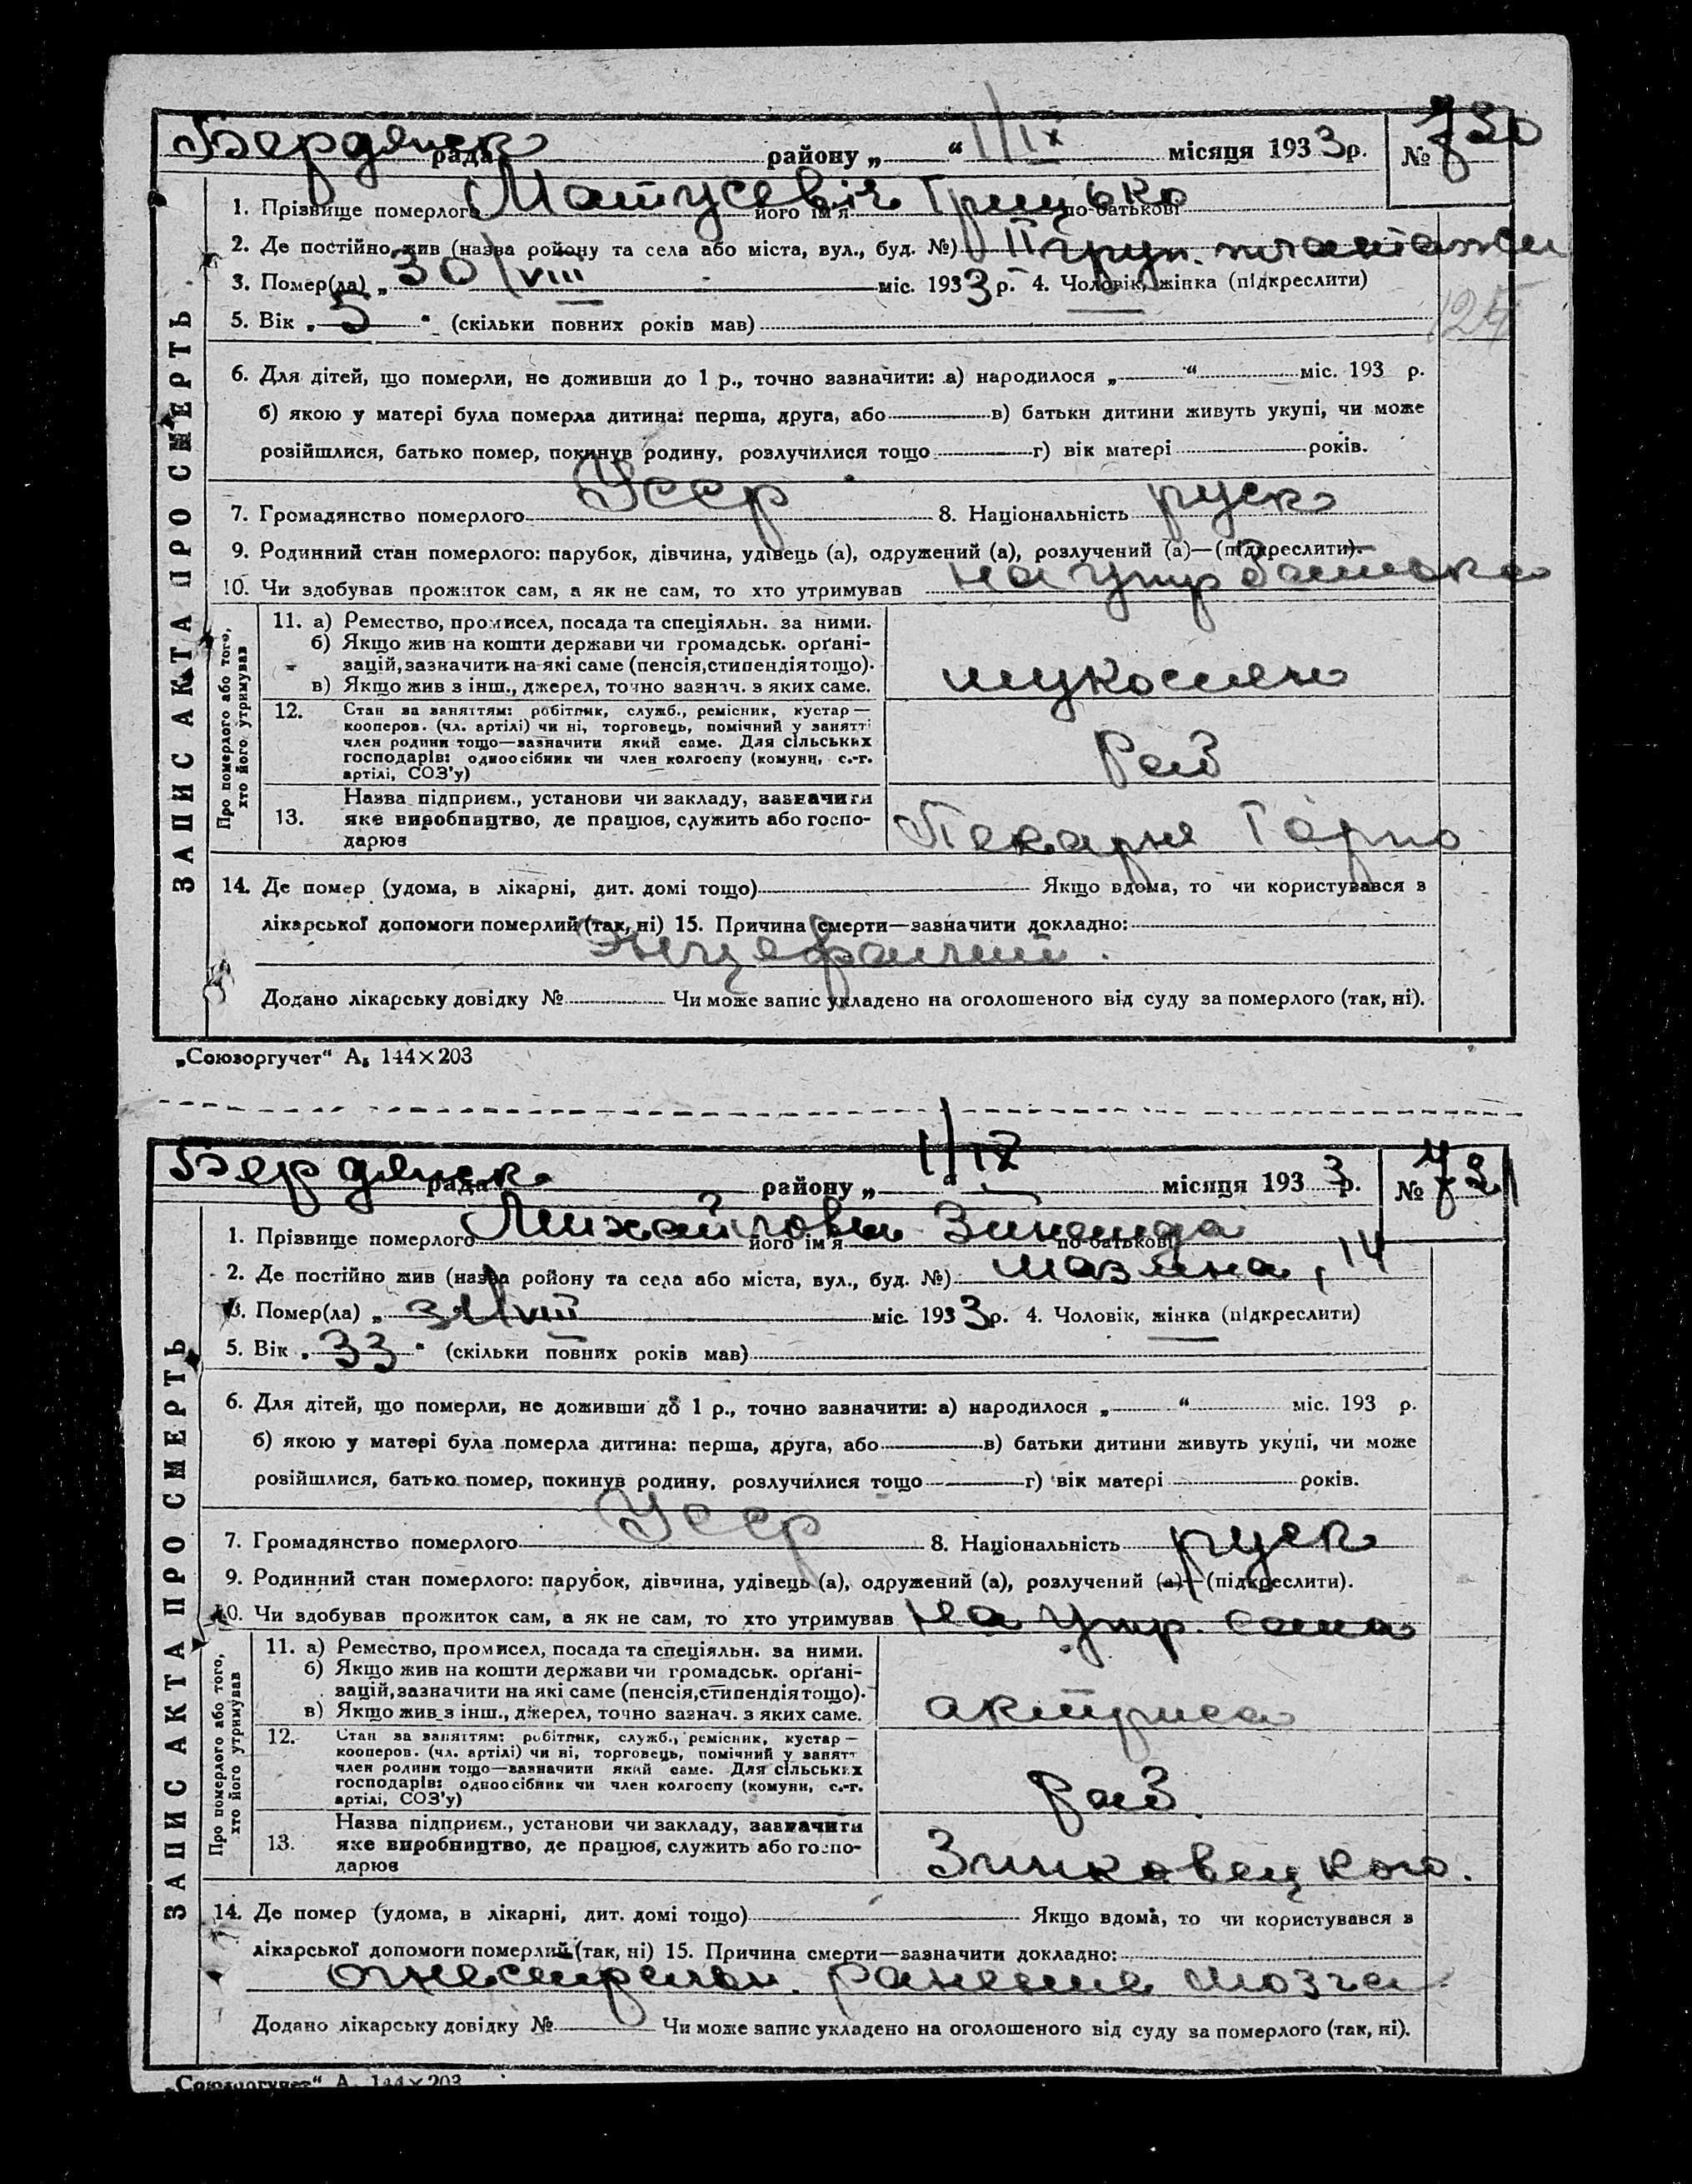 Бердянск рада району „ “ 1/IX місяця 1933 р. № 720
ЗАПИС АКТА ПРО СМЕРТЬ
1. Прізвище померлого Матусевіч його ім'я Грицько по-батькові
2. Де постійно жив (назва ройону та села або міста, вул., буд. №) II груп. плантажи
3. Помер(ла) „ 30/VIII міс. 1933 р. 4. Чоловік, жінка (підкреслити)
125
5. Вік „ 5 “ (скільки повних років мав)
6. Для дітей, що померли, не доживши до 1 р., точно зазначити: а) народилося „ “ міс. 193 р.
б) якою у матері була померла дитина: перша, друга, або в) батьки дитини живуть укупі, чи може
розійшлися, батько помер, покинув родину, розлучилися тощо г) вік матері років.
7. Громадянство померлого Усср 8. Національність руск
9. Родинний стан померлого: парубок, дівчина, удівець (а), одружений (а), розлучений (а)—(підкреслити).
10. Чи здобував прожиток сам, а як не сам, то хто утримував на упр батька
Про померлого або того, хто його утримував
11. а) Ремество, промисел, посада та спеціяльн. за ними.
б) Якщо жив на кошти держави чи громадськ. орґані-
зацій, зазначити на які саме (пенсія, стипендія тощо).
в) Якщо жив з інш., джерел, точно зазнач. з яких саме.
мукосеяч
12. Стан за заняттям: робітник, служб., ремісник, кустар—
кооперов. (чл. артілі) чи ні, торговець, помічний у занятті
член родини тощо—зазначити який саме. Для сільських
господарів: одноосібник чи член колгоспу (комуни, с.-г.
артілі, СОЗ'у)
Раб
13. Назва підприєм., установи чи закладу, зазначити
яке виробництво, де працює, служить або госпо-
дарює
Пекарня Горпо
14. Де помер (удома, в лікарні, дит. домі тощо) Якщо вдома, то чи користувався з
лікарської допомоги померлий (так, ні) 15. Причина смерти—зазначити докладно:
Энцефалит.
Додано лікарську довідку № Чи може запис укладено на оголошеного від суду за померлого (так, ні).
„Союзоргучет“ А₅ 144×203
Бердянск. рада району „ “ 1/IX місяця 1933 р. № 721
ЗАПИС АКТА ПРО СМЕРТЬ
1. Прізвище померлого Михайлова його ім'я Зинаида по-батькові
2. Де постійно жив (назва ройону та села або міста, вул., буд. №) Мазина, 14
3. Помер(ла) „ 31/VIII міс. 1933 р. 4. Чоловік, жінка (підкреслити)
5. Вік „ 33 “ (скільки повних років мав)
6. Для дітей, що померли, не доживши до 1 р., точно зазначити: а) народилося „ “ міс. 193 р.
б) якою у матері була померла дитина: перша, друга, або в) батьки дитини живуть укупі, чи може
розійшлися, батько помер, покинув родину, розлучилися тощо г) вік матері років.
7. Громадянство померлого Усср 8. Національність руск
9. Родинний стан померлого: парубок, дівчина, удівець (а), одружений (а), розлучений (а)—(підкреслити).
10. Чи здобував прожиток сам, а як не сам, то хто утримував на упр. сама
Про померлого або того, хто його утримував
11. а) Ремество, промисел, посада та спеціяльн. за ними.
б) Якщо жив на кошти держави чи громадськ. орґані-
зацій, зазначити на які саме (пенсія, стипендія тощо).
в) Якщо жив з інш., джерел, точно зазнач. з яких саме.
актриса
12. Стан за заняттям: робітник, служб., ремісник, кустар—
кооперов. (чл. артілі) чи ні, торговець, помічний у занятт
член родини тощо—зазначити який саме. Для сільських
господарів: одноосібник чи член колгоспу (комуни, с.-г.
артілі, СОЗ'у)
раб.
13. Назва підприєм., установи чи закладу, зазначити
яке виробництво, де працює, служить або госпо-
дарює
Зиньковецкого.
14. Де помер (удома, в лікарні, дит. домі тощо) Якщо вдома, то чи користувався з
лікарської допомоги померлий (так, ні) 15. Причина смерти—зазначити докладно:
огнестрельн. ранение мозга
Додано лікарську довідку № Чи може запис укладено на оголошеного від суду за померлого (так, ні).
„Союзоргучет“ А. 144×203